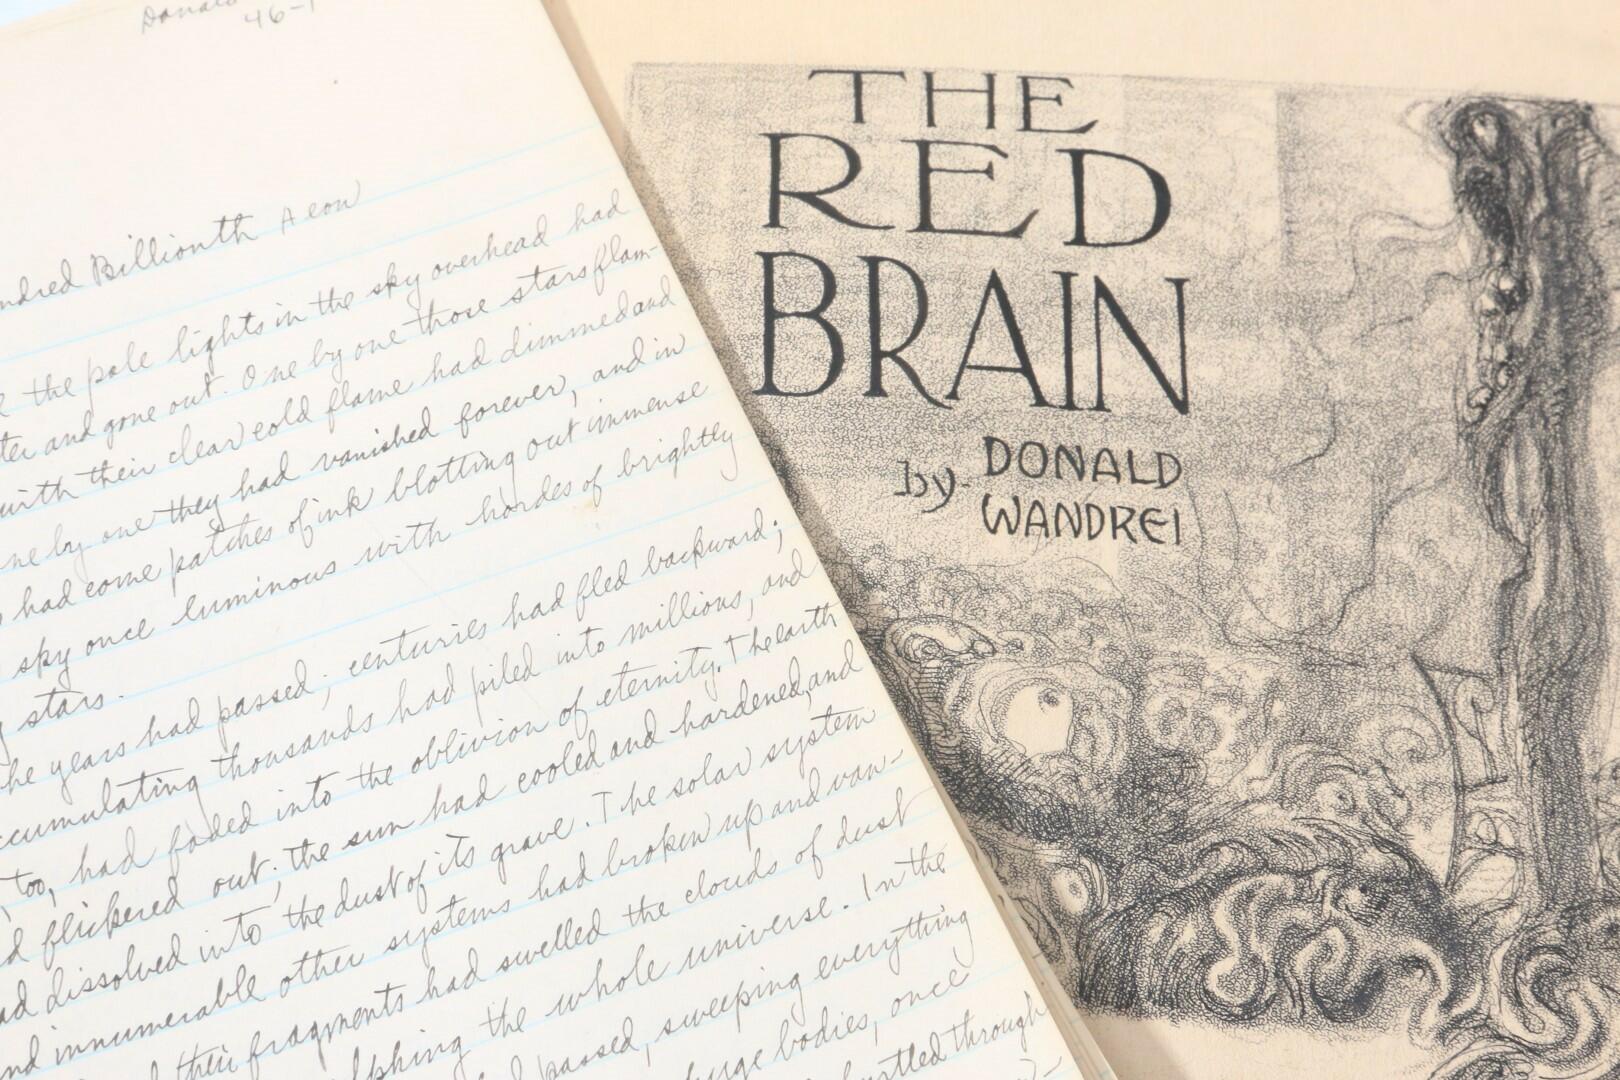 Donald
46-1
ndred Billionth Aeon
the pale lights in the sky overhead had
ter and gone out. One by one those stars flam-
with their clear cold flame had dimmed and
ne by one they had vanished forever, and in
had come patches of ink blotting out immense
sky once luminous with hordes of brightly
stars.
he years had passed; centuries had fled backward;
ccumulating thousands had piled into millions, and
too, had faded into the oblivion of eternity. The earth
d flickered out; the sun had cooled and hardened, and
ad dissolved into the dust of its grave. The solar system
nd innumerable other systems had broken up and van-
their fragments had swelled the clouds of dust
lphing the whole universe. In the
passed, sweeping everything
huge bodies, once
hurtled through
THE
RED
BRAIN
by-
DONALD
WANDREI